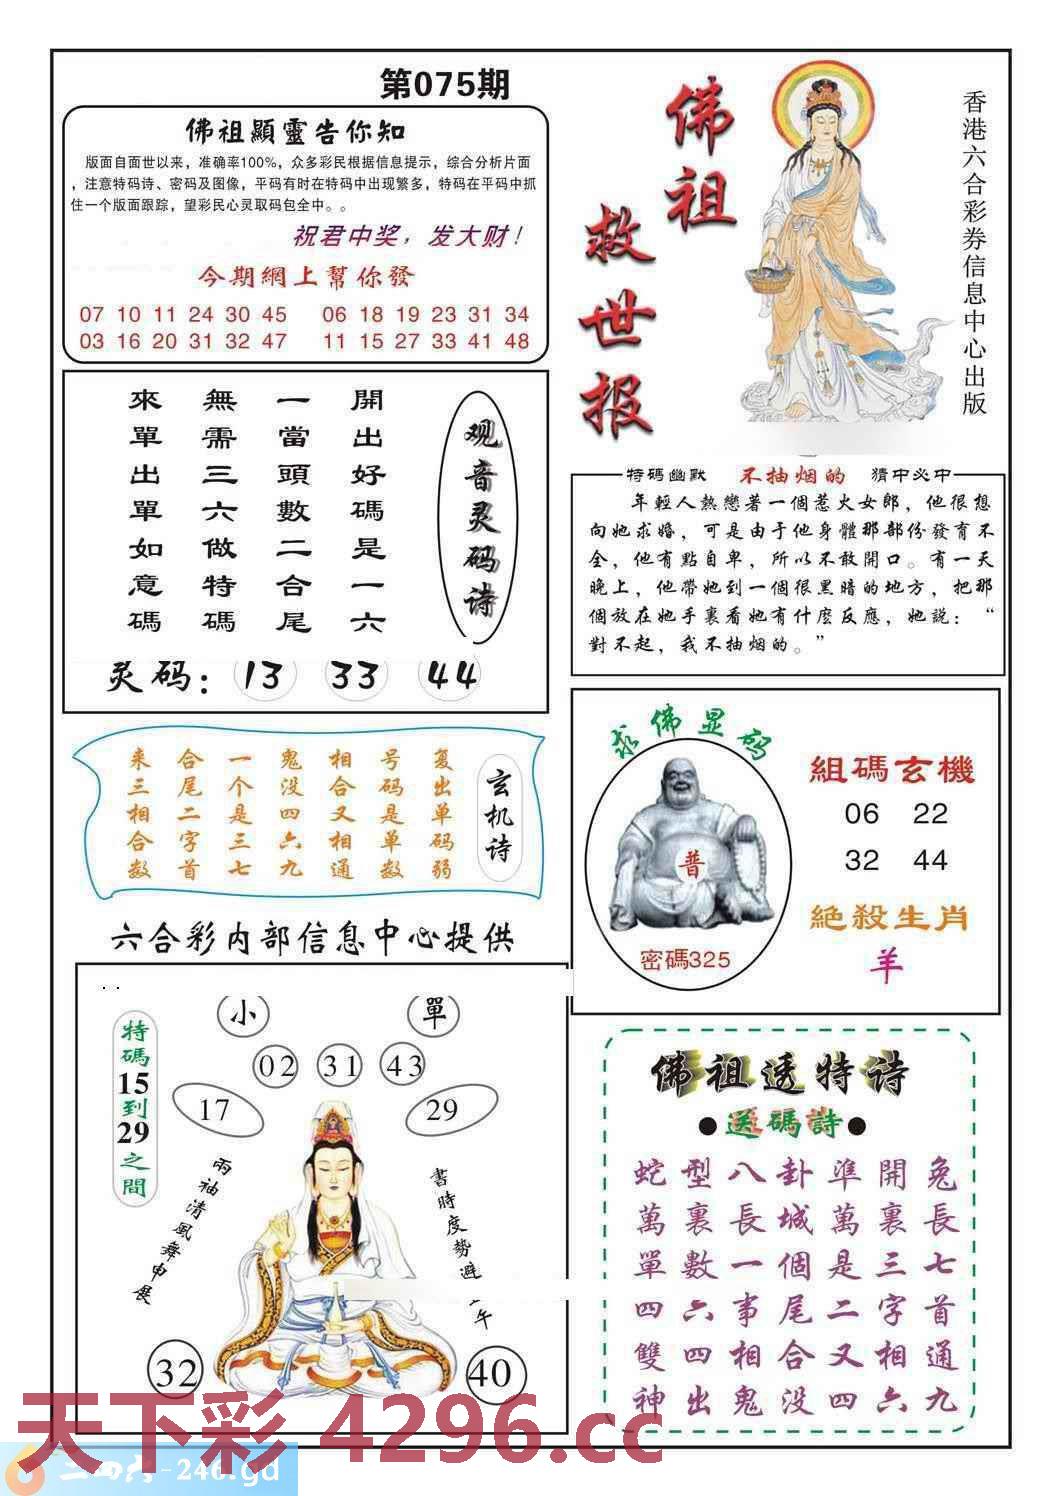 第075期
佛祖顯靈告你知
版面自面世以来，准确率100%，众多彩民根据信息提示，综合分析片面
，注意特码诗、密码及图像，平码有时在特码中出现繁多，特码在平码中抓
住一个版面跟踪，望彩民心灵取码包全中。。
祝君中奖，发大财！
今期網上幫你發
07 10 11 24 30 45 06 18 19 23 31 34
03 16 20 31 32 47 11 15 27 33 41 48
佛祖
救世报
香港六合彩券信息中心出版
观音灵码诗
開出好碼是一六
一當頭數二合尾
無需三六做特碼
來單出單如意碼
灵码：13 33 44
特碼幽默 不抽烟的 猜中必中
年輕人熱戀著一個惹火女郎，他很想
向她求婚，可是由于他身體那部份發育不
全，他有點自卑，所以不敢開口。有一天
晚上，他帶她到一個很黑暗的地方，把那
個放在她手裏看她有什麽反應，她説：“
對不起，我不抽烟的。”
玄机诗
复出单码弱
号码是单数
相合又相通
鬼没四六九
一个是三七
合尾二字首
来三相合数
求佛显码
普
密碼325
組碼玄機
06 22
32 44
絶殺生肖
羊
六合彩内部信息中心提供
小 單
02 31 43
17 29
特碼15到29之間
兩袖清風舞申展
書時度勢避 午
32 40
佛祖透特诗
●送碼詩●
蛇型八卦準開兔
萬裏長城萬裏長
單數一個是三七
四六事尾二字首
雙四相合又相通
神出鬼没四六九
天下彩 4296.cc
二四六-246.gd